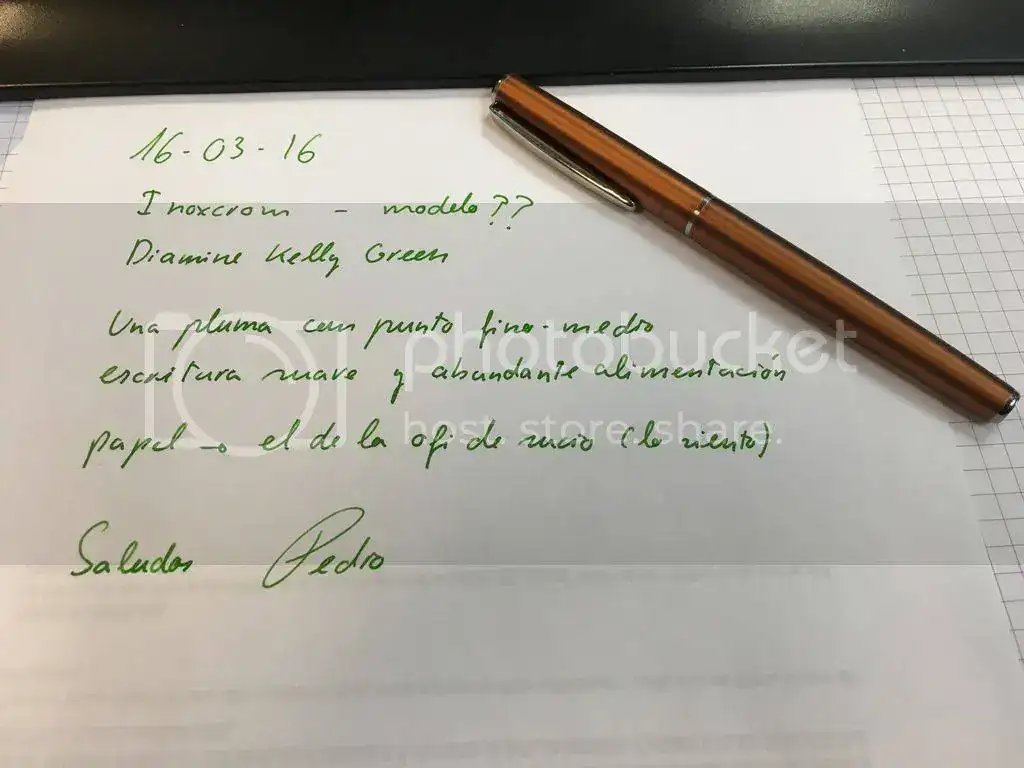 16-03-16
Inoxcrom - modelo??
Diamine Kelly Green
Una pluma con punto fino-medio
escritura suave y abundante alimentación
papel → el de la ofi de sucio (lo siento)
Saludos Pedro
photobucket
host. store. share.